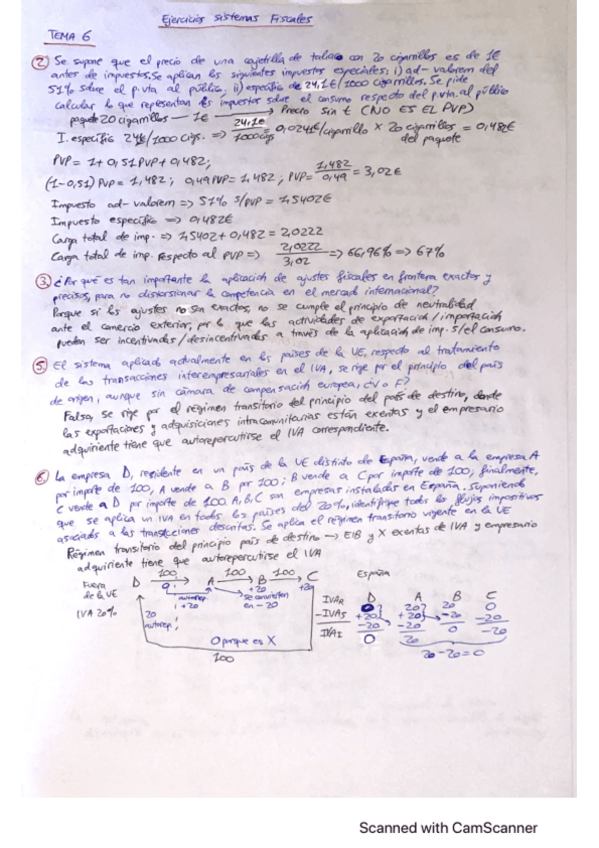 Ejercicios Sistemas Fiscales
TEMA 6
2. Se supone que el precio de una cajetilla de tabaco con 20 cigarrillos es de 1€
antes de impuestos. Se aplican los siguientes impuestos especiales: i) ad-valorem del
51% sobre el p.vta al público; ii) específico de 24,1€/1000 cigarrillos. Se pide
calcular lo que representan los impuestos sobre el consumo respecto del p.vta. al público
paquete 20 cigarrillos — 1€ → Precio sin t (NO ES EL PVP)
I. específico 24€/1000 cigs. ⇒ 24,1€/1000cigs = 0,0241€/cigarrillo × 20 cigarrillos = 0,482€
del paquete
PVP = 1 + 0,51PVP + 0,482;
(1-0,51) PVP = 1,482; 0,49PVP = 1,482; PVP = 1,482/0,49 = 3,02€
Impuesto ad-valorem ⇒ 51% s/PVP = 1,5402€
Impuesto específico ⇒ 0,482€
Carga total de imp. ⇒ 1,5402 + 0,482 = 2,0222
Carga total de imp. respecto al PVP ⇒ 2,0222/3,02 ⇒ 66,96% ⇒ 67%
3. ¿Por qué es tan importante la aplicación de ajustes fiscales en frontera exactos y
precisos, para no distorsionar la competencia en el mercado internacional?
Porque si los ajustes no son exactos, no se cumple el principio de neutralidad
ante el comercio exterior, por lo que las actividades de exportación/importación
pueden ser incentivadas/desincentivadas a través de la aplicación de imp. s/el consumo.
5. El sistema aplicado actualmente en los países de la UE, respecto al tratamiento
de las transacciones interempresariales en el IVA, se rige por el principio del país
de origen, aunque sin cámara de compensación europea, ¿V o F?
Falso, se rige por el régimen transitorio del principio del país de destino, donde
las exportaciones y adquisiciones intracomunitarias están exentas y el empresario
adquiriente tiene que autorepercutirse el IVA correspondiente.
6. La empresa D, residente en un país de la UE distinto de España, vende a la empresa A
por importe de 100, A vende a B por 100; B vende a C por importe de 100; finalmente,
C vende a D por importe de 100. A, B, C son empresas instaladas en España. Suponiendo
que se aplica un IVA en todos los países del 20%, identifique todos los flujos impositivos
asociados a las transacciones descritas. Se aplica el régimen transitorio vigente en la UE
Régimen transitorio del principio país de destino → EIB y X exentas de IVA y empresario
adquiriente tiene que autorepercutirse el IVA
Fuera D 100 A 100 B 100 C España
de la UE 0 +20 +20
autorep. se convierten
i +20 en -20
IVA 20%
20
autorep.
0 porque es X
100
D A B C
IVAR 0 20 20 0
-IVAS +20 +20 -20 -20
-20 -20
IVAI 0 20 0 -20
20-20=0
Scanned with CamScanner